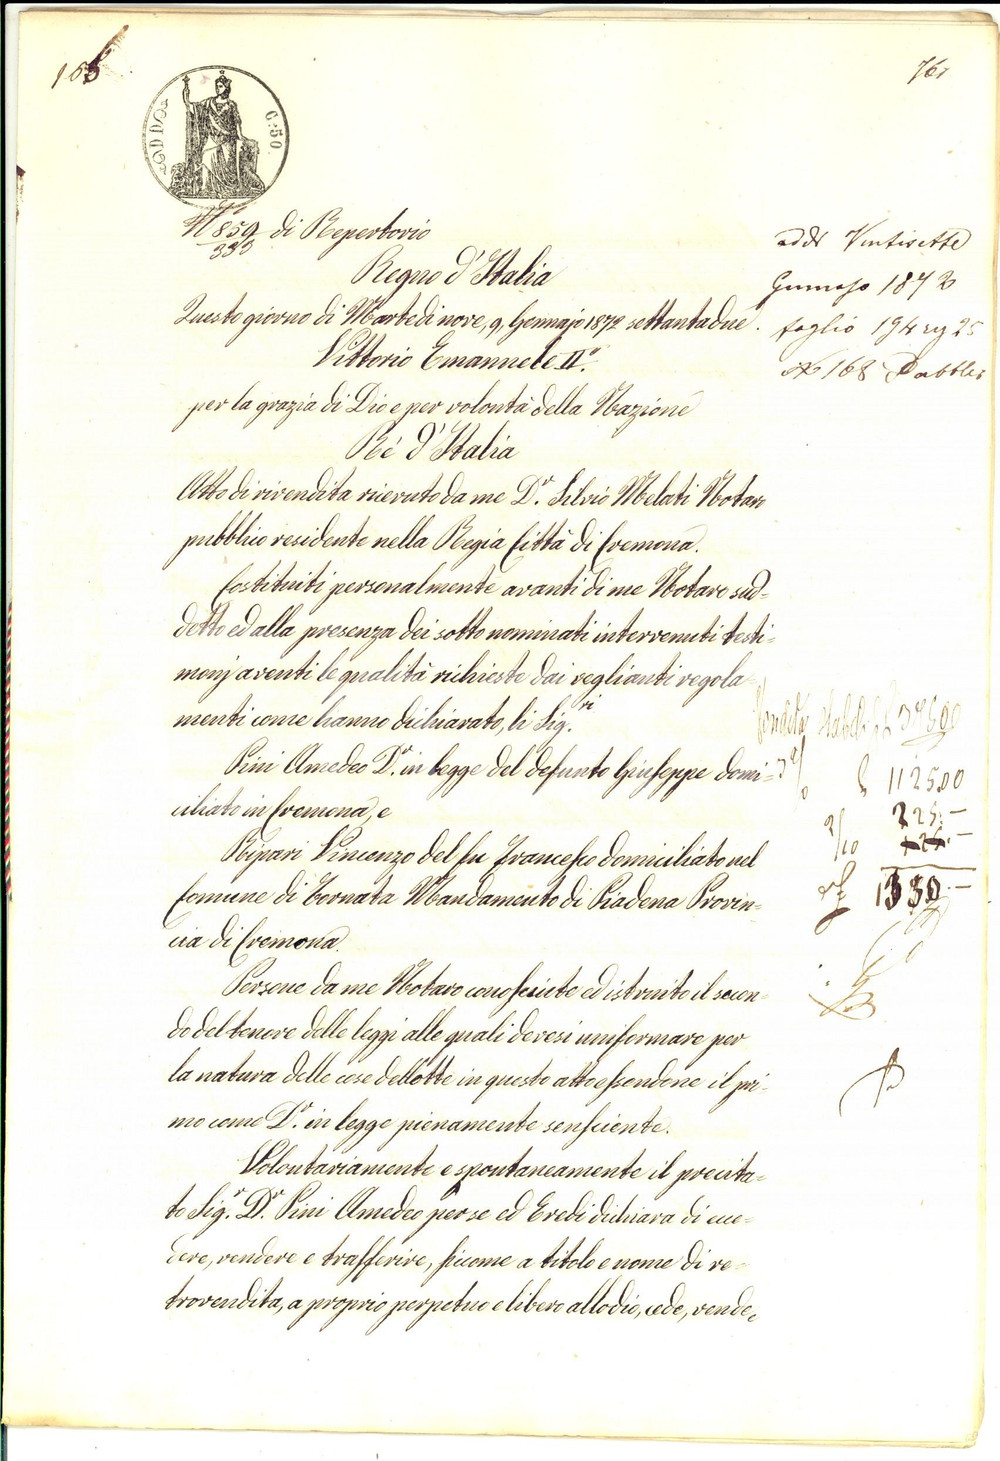 168
767
C: 50
N° 859 di Repertorio
333
Regno d'Italia
Questo giorno di Martedi nove, 9, Gennajo 1872 settantadue.
Vittorio Emanuele II°.
per la grazia di Dio e per volontà della Nazione
Rè d'Italia
Atto di rivendita ricevuto da me D.r Silvio Melati Notaro
pubblico residente nella Regia Città di Cremona.
Costituiti personalmente avanti di me Notaro sud-
detto ed alla presenza dei sotto nominati intervenuti testi-
monj aventi le qualità richieste dai veglianti regola-
menti come hanno dichiarato, li Sig.ri
Pini Amedeo D.r in legge del defunto Giuseppe domi-
ciliato in Cremona, e
Ripari Vincenzo del fu Francesco domiciliato nel
Comune di Tornata Mandamento di Piadena Provin-
cia di Cremona.
Persone da me Notaro conosciute ed istruito il secon-
do del tenore delle leggi alle quali devesi uniformare per
la natura delle cose dedotte in questo atto essendone il pri-
mo come D.r in legge pienamente senscente.
Volontariamente e spontaneamente il precita-
to Sig.r D.r Pini Amedeo per se ed Eredi dichiara di ce-
dere, vendere e trasferire, siccome a titolo e nome di re-
trovendita, a proprio perpetuo e libero allodio, cede, vende,
addì Ventisette
Gennajo 1872
foglio 194 reg 25
N 168 Pubbles
Vendita stabili £ 37500
3 %
£ 1125.00
2/10 225.-
1350.-